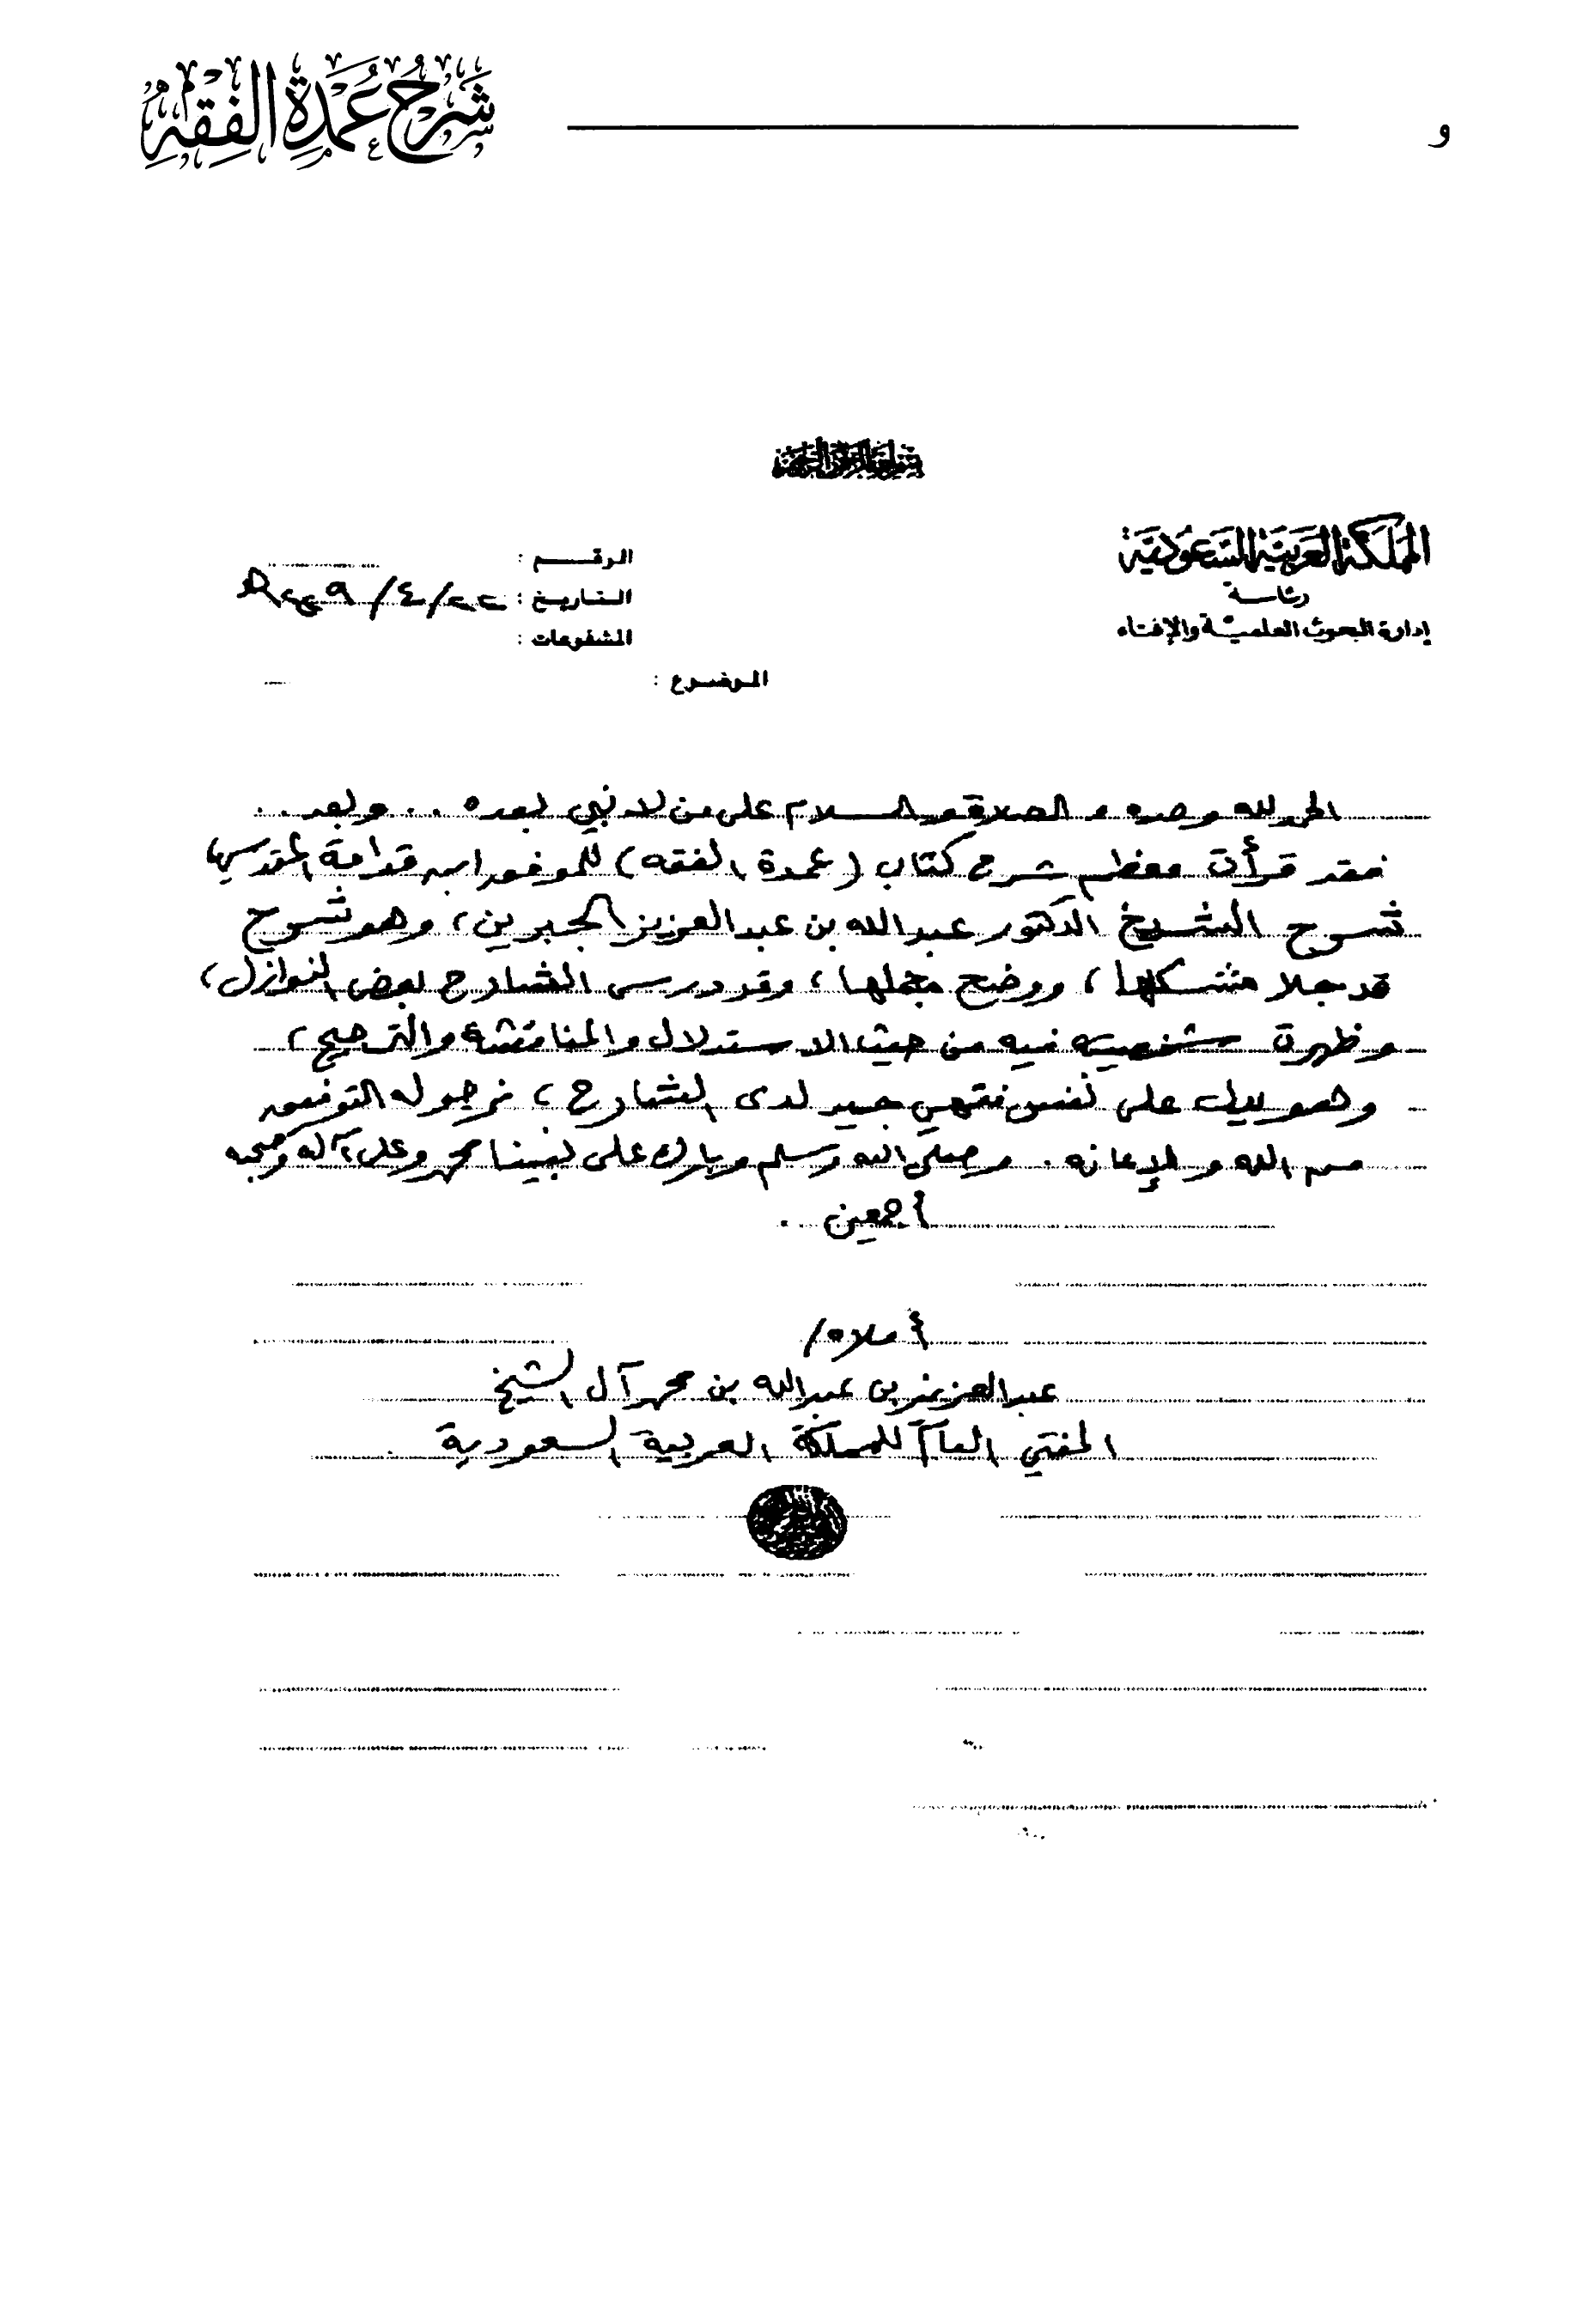 و
شَرْحُ عُمْدَةِ الفِقْهِ
بسم الله الرحمن الرحيم
المملكة العربية السعودية
رئاسة
إدارة البحوث العلمية والإفتاء
الرقم :
التاريخ : ٢٢/٤/١٤٢٩هـ
المشفوعات :
الموضوع :
الحمد لله وحده والصلاة والسلام على من لا نبي بعده .. وبعد ..
فقد قرأت معظم شرح كتاب (عمدة الفقه) للموفق ابن قدامة المقدسي
شرح الشيخ الدكتور عبدالله بن عبدالعزيز الجبرين، وهو شرح
قد جلا مشكلها، ووضح مجملها، وقد درس الشارح بعض النوازل،
وظهرت شخصيته فيه من حيث الاستدلال والمناقشة والترجيح،
وهو يدل على نفس فقهي جيد لدى الشارح، نرجو له التوفيق
من الله والإعانه. وصلى الله وسلم وبارك على نبينا محمد وعلى آله وصحبه
أجمعين .
أملاه/
عبدالعزيز بن عبدالله بن محمد آل الشيخ
المفتي العام للمملكة العربية السعودية .